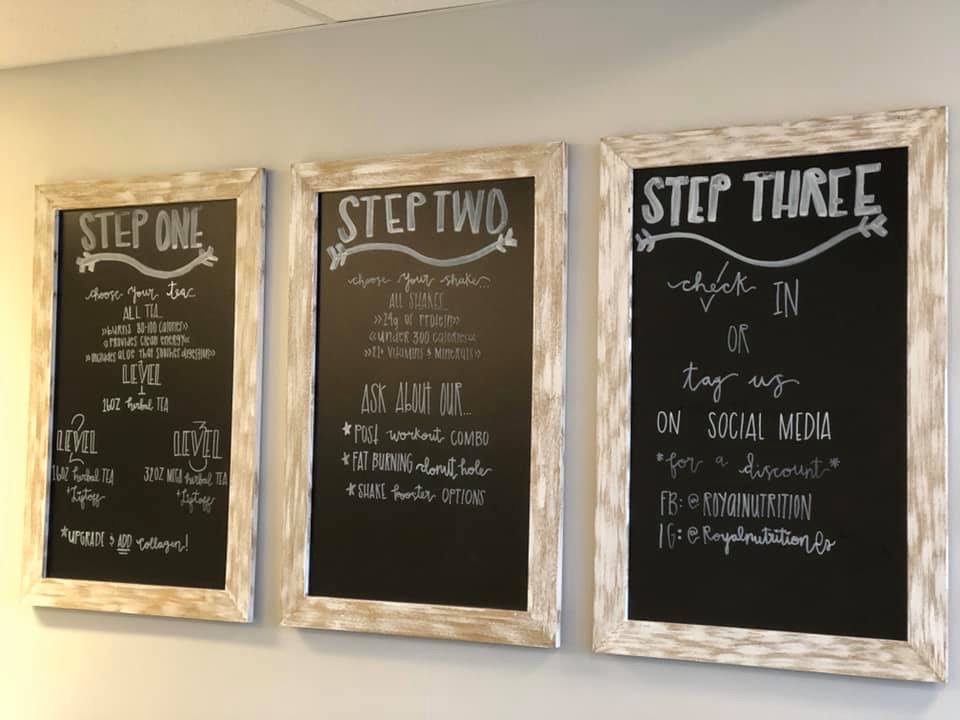 STEP ONE
choose your tea
ALL TEA...
»burns 80-100 calories»
«Provides clean energy«
»includes aloe that soothes digestion»
LEVEL
1
16OZ herbal TEA
LEVEL 2
16OZ herbal TEA
+ Liftoff
LEVEL 3
32OZ MEGA herbal TEA
+ Liftoff
*UPGRADE & ADD collagen!
STEP TWO
choose your shake...
ALL SHAKES
»24g of Protein»
«under 300 calories«
»21 Vitamins & Minerals»
ASK About OUR...
*POST workout COMBO
*FAT BURNING donut hole
*SHAKE booster OPTIONS
STEP THREE
check IN
OR
tag us
ON SOCIAL MEDIA
*for a discount*
FB: @ROYALNUTRITION
IG: @Royalnutrition